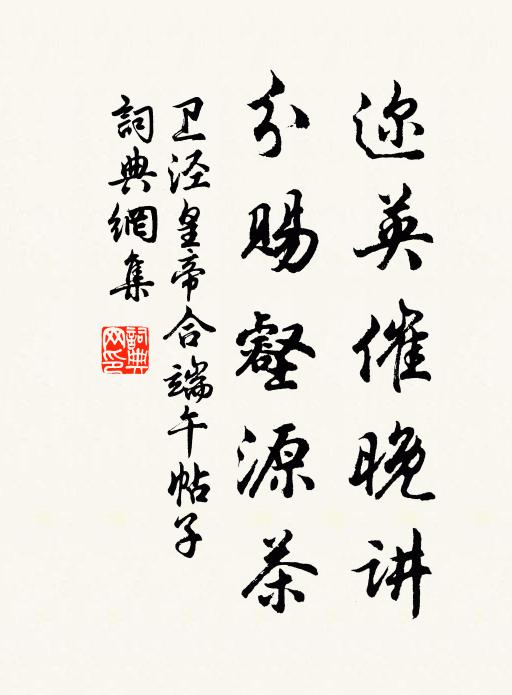 迩英催晚讲
分赐壑源茶
卫泾皇帝合端午帖子
词典網集
詞典网印